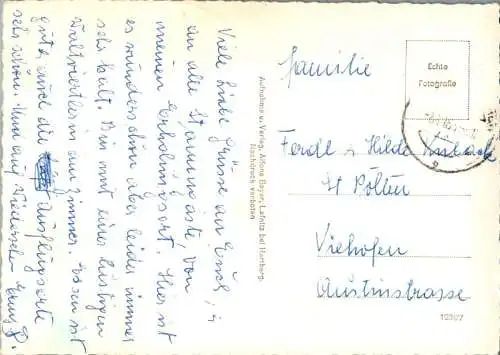 Viele liebe Grüsse an Euch,
an alle Stammgäste, von
meinen Erholungsort. Hier ist
es wunderschön aber leider immer
sehr kalt. Bin mit einer lustigen
Waldviertlerin am Zimmer. Essen ist
gut, auch die Ausflugsorte
sehr schön. Und auf Wiedersehen
Aufnahme u. Verlag: Alfons Bayer, Lafnitz bei Hartberg.
Nachdruck verboten
Echte
Fotografie
Familie
Ferdl u Hilde
St Pölten
Viehofen
Austinstrasse
12367